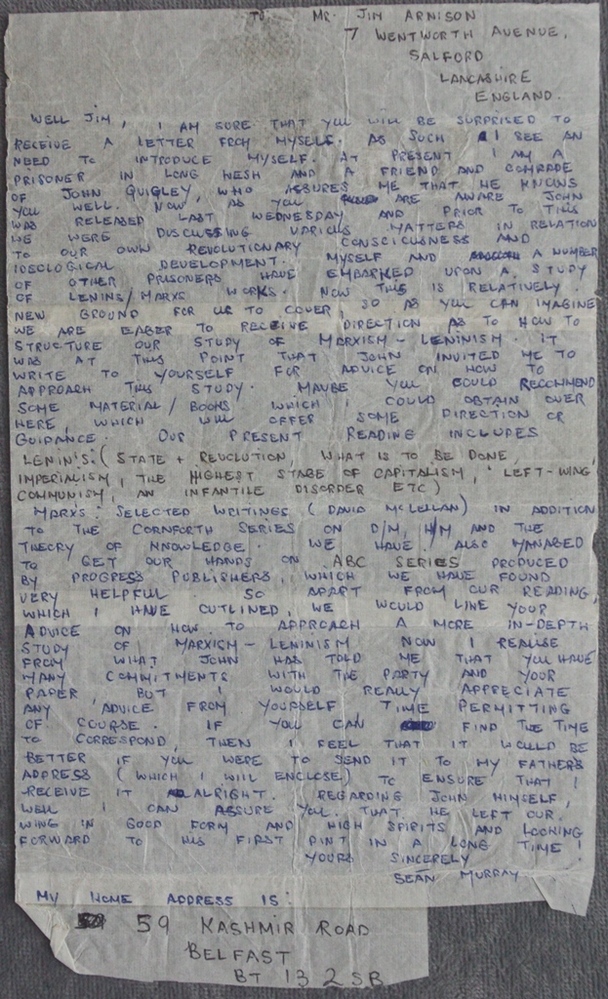 TO: MR. JIM ARNISON
7 WENTWORTH AVENUE,
SALFORD
LANCASHIRE
ENGLAND.
WELL JIM, I AM SURE THAT YOU WILL BE SURPRISED TO
RECEIVE A LETTER FROM MYSELF. AS SUCH I SEE AN
NEED TO INTRODUCE MYSELF. AT PRESENT I AM A
PRISONER IN LONG KESH AND A FRIEND AND COMRADE
OF JOHN QUIGLEY, WHO ASSURES ME THAT HE KNOWS
YOU WELL. NOW, AS YOU ARE AWARE JOHN
WAS RELEASED LAST WEDNESDAY AND PRIOR TO THIS
WE WERE DUSCUSSING VARIOUS MATTERS IN RELATION
TO OUR OWN REVOLUTIONARY CONSCIOUSNESS AND
IDEOLOGICAL DEVELOPMENT. MYSELF AND A NUMBER
OF OTHER PRISONERS HAVE EMBARKED UPON A STUDY
OF LENINS/MARXS WORKS. NOW THIS IS RELATIVELY
NEW GROUND FOR US TO COVER, SO AS YOU CAN IMAGINE
WE ARE EAGER TO RECEIVE DIRECTION AS TO HOW TO
STRUCTURE OUR STUDY OF MARXISM-LENINISM. IT
WAS AT THIS POINT THAT JOHN INVITED ME TO
WRITE TO YOURSELF FOR ADVICE ON HOW TO
APPROACH THIS STUDY. MAYBE YOU COULD RECOMMEND
SOME MATERIAL/BOOKS WHICH I COULD OBTAIN OVER
HERE, WHICH WILL OFFER SOME DIRECTION OR
GUIDANCE. OUR PRESENT READING INCLUDES
LENIN'S: (STATE + REVOLUTION, WHAT IS TO BE DONE,
IMPERIALISM, THE HIGHEST STAGE OF CAPITALISM, 'LEFT-WING'
COMMUNISM, AN INFANTILE DISORDER ETC)
MARXS: SELECTED WRITINGS (DAVID McLELLAN) IN ADDITION
TO THE CORNFORTH SERIES ON D/M, H/M AND THE
THEORY OF KNOWLEDGE. WE HAVE ALSO MANAGED
TO GET OUR HANDS ON ABC SERIES PRODUCED
BY PROGRESS PUBLISHERS, WHICH WE HAVE FOUND
VERY HELPFUL. SO APART FROM OUR READING,
WHICH I HAVE OUTLINED, WE WOULD LIKE YOUR
ADVICE ON HOW TO APPROACH A MORE IN-DEPTH
STUDY OF MARXISM-LENINISM NOW I REALISE
FROM WHAT JOHN HAS TOLD ME THAT YOU HAVE
MANY COMMITMENTS WITH THE PARTY AND YOUR
PAPER, BUT I WOULD REALLY APPRECIATE
ANY ADVICE FROM YOURSELF TIME PERMITTING
OF COURSE. IF YOU CAN FIND THE TIME
TO CORRESPOND, THEN I FEEL THAT IT WOULD BE
BETTER IF YOU WERE TO SEND IT TO MY FATHERS
ADDRESS (WHICH I WILL ENCLOSE) TO ENSURE THAT I
RECEIVE IT ALRIGHT. REGARDING JOHN HIMSELF,
WELL I CAN ASSURE YOU THAT HE LEFT OUR
WING IN GOOD FORM AND HIGH SPIRITS AND LOOKING
FORWARD TO HIS FIRST PINT IN A LONG TIME!
YOURS SINCERELY
SEÁN MURRAY
MY HOME ADDRESS IS:
59 KASHMIR ROAD
BELFAST
BT 13 2SB